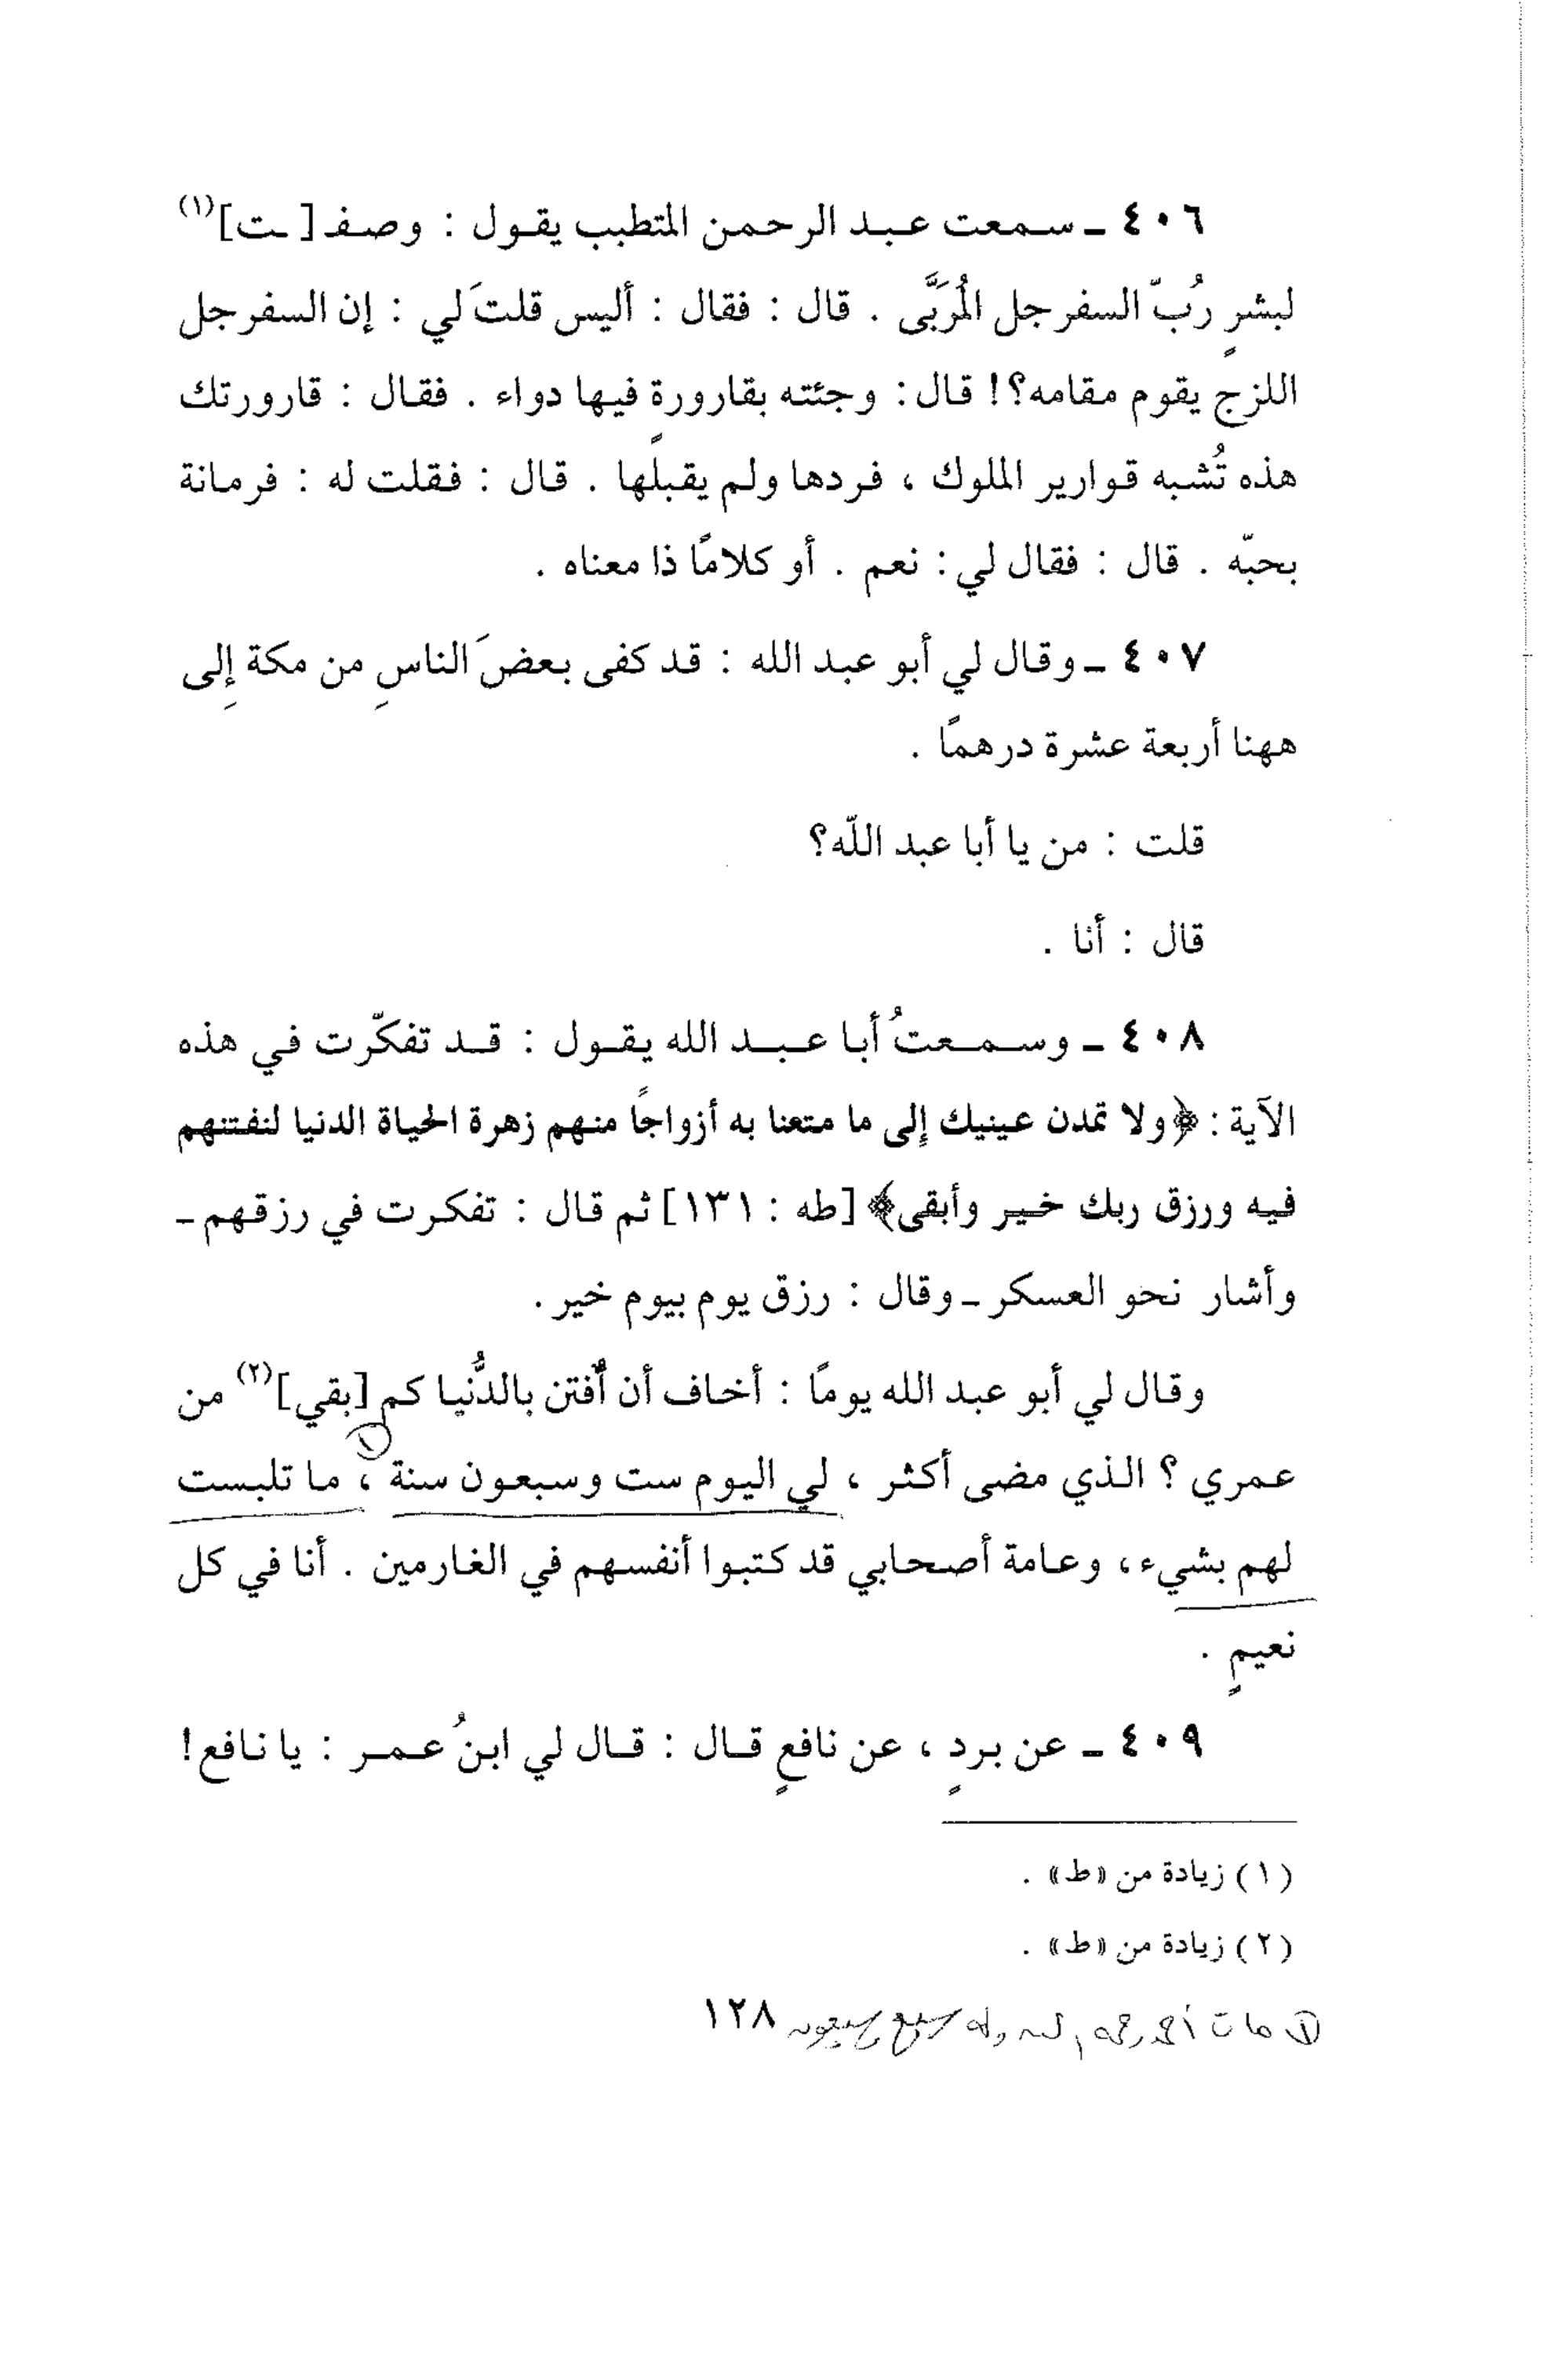 ٤٠٦ ـ سـمعت عـبـد الرحمـن المتطبب يقـول : وصـفـ[ـت](١)
لبشرٍ رُبّ السفرجل المُربَّى . قال : فقال : أليس قلتَ لي : إن السفرجل
اللزج يقوم مقامه؟! قال : وجئته بقارورةٍ فيها دواء . فقال : قارورتك
هذه تُشبه قوارير الملوك ، فردها ولم يقبلها . قال : فقلت له : فرمانة
بحبّه . قال : فقال لي : نعم . أو كلامًا ذا معناه .
٤٠٧ ـ وقال لي أبو عبد الله : قد كفى بعضَ الناسِ من مكة إِلى
ههنا أربعة عشرة درهمًا .
قلت : من يا أبا عبد اللّه؟
قال : أنا .
٤٠٨ ـ وسـمـعتُ أبـا عـبـد الله يقـول : قـد تفكّرت في هذه
الآية : ﴿ولا تمدن عينيك إلى ما متعنا به أزواجًا منهم زهرة الحياة الدنيا لنفتنهم
فيه ورزق ربك خير وأبقى﴾ [طه : ١٣١] ثم قال : تفكرت في رزقهم ـ
وأشار نحو العسكر ـ وقال : رزق يوم بيوم خير .
وقال لي أبو عبد الله يومًا : أخاف أن أُفتن بالدُّنيا كم [بقي](٢) من
عمري ؟ الذي مضى أكثر ، لي اليوم ست وسبعون سنة ، ① ما تلبست
لهم بشيء ، وعامة أصحابي قد كتبوا أنفسهم في الغارمين . أنا في كل
نعيمٍ .
٤٠٩ ـ عن بـردٍ ، عن نافعٍ قـال : قـال لي ابنُ عـمـر : يا نـافع!
(١) زيادة من «ط» .
(٢) زيادة من «ط» .
① مات أحمد رحمه الله وله سبع وسبعون ١٢٨